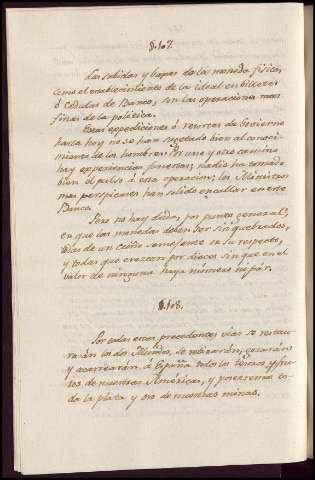 §. 107.
Las subidas y bajas de la moneda fisica,
como el establecimiento de la ideal en billetes
ó cédulas de Banco, son las operaciones mas
finas de la política.
Estas expediciones ó recursos de Gobierno
hasta hoy no se han sugetado bien al conoci-
miento de los hombres. Por uno y otro camino
hay experiencias funestas; nadie ha tomado
bien el pulso á esta operacion; los Ministros
mas perspicaces han solido encallar en este
Banco.
Pero no hay duda, por punto general,
en que las monedas deben ser sin quebrados,
todas de un cuño semejante en su respecto,
y todas que crezcan por dieces sin que en el
valor de ninguna haya número impár.
§. 108.
Por todas estas precedentes vias se restau-
rarán los dos Mundos, se enlazarán, gozarán
y acarrearán á España todos los bienes y fru-
tos de nuestras Américas, y poseeremos to-
da la plata y oro de nuestras minas.